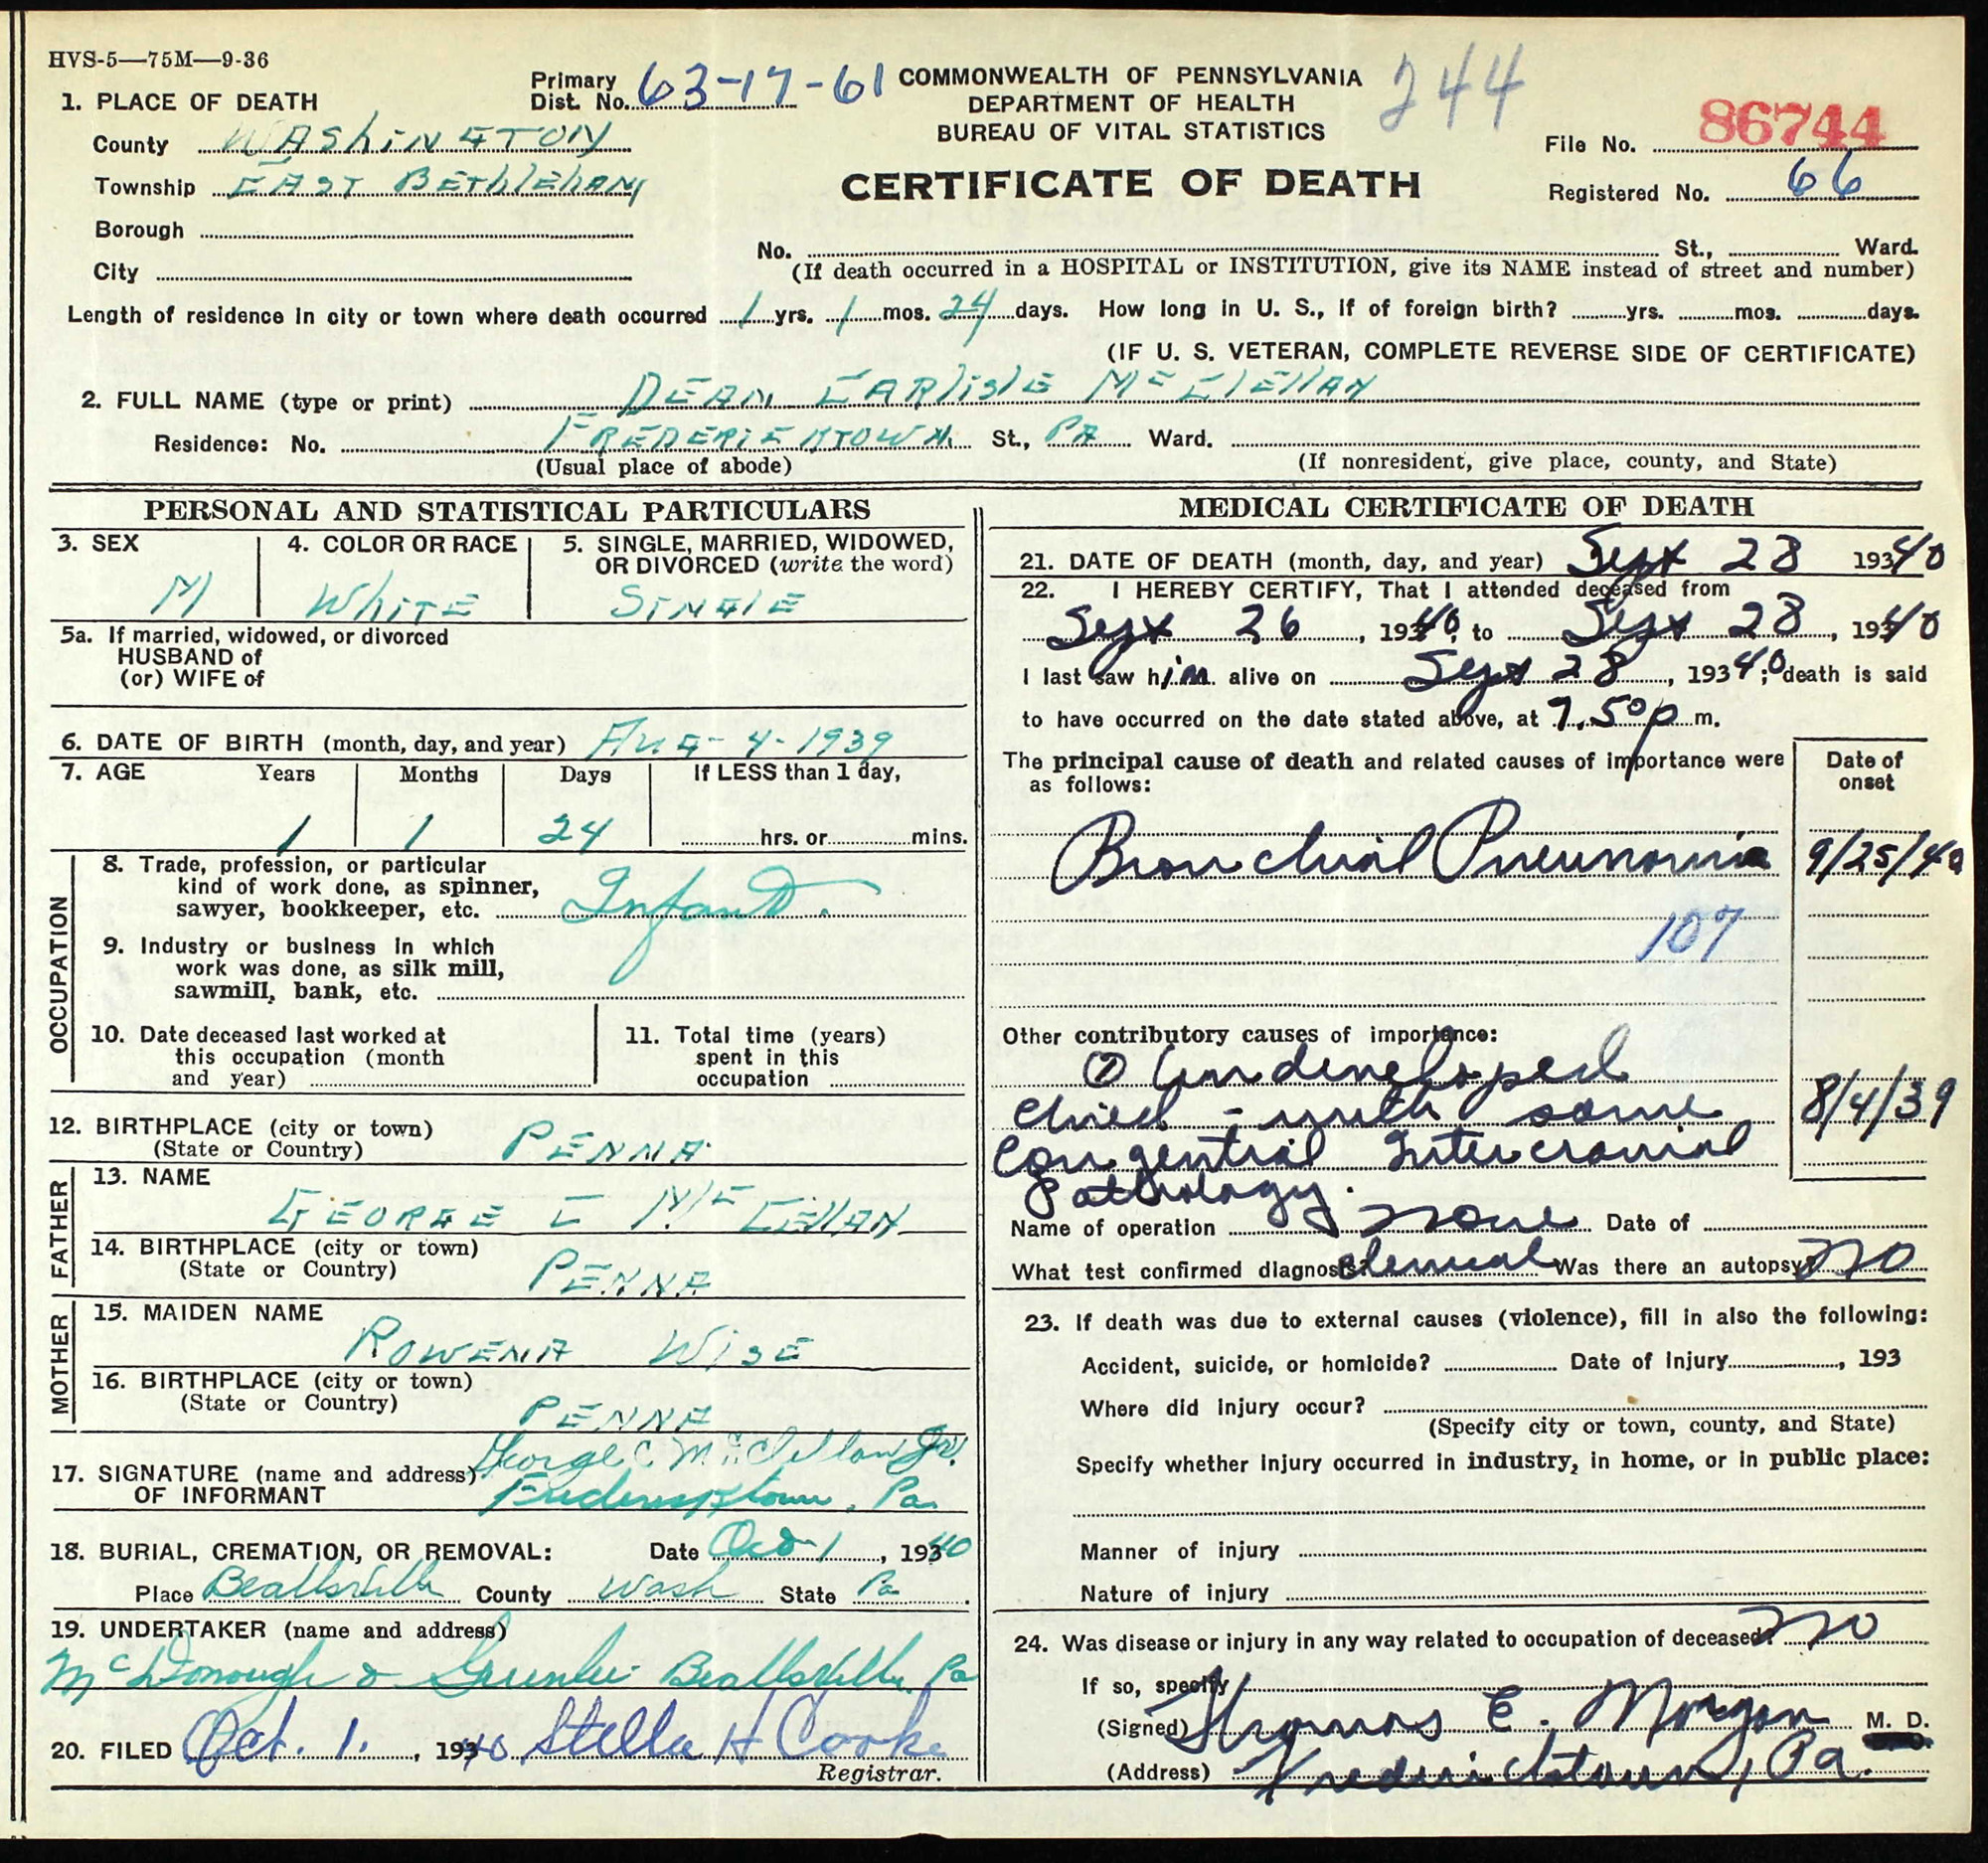 HVS-5—75M—9-36
Primary Dist. No. 63-17-61
COMMONWEALTH OF PENNSYLVANIA
DEPARTMENT OF HEALTH
BUREAU OF VITAL STATISTICS
CERTIFICATE OF DEATH
244
File No. 86744
Registered No. 66
1. PLACE OF DEATH
County WAShiNGTON
Township EAST BEThlEhAM
Borough
City
No. St., Ward.
(If death occurred in a HOSPITAL or INSTITUTION, give its NAME instead of street and number)
Length of residence in city or town where death occurred 1 yrs. 1 mos. 24 days. How long in U. S., if of foreign birth? yrs. mos. days.
(IF U. S. VETERAN, COMPLETE REVERSE SIDE OF CERTIFICATE)
2. FULL NAME (type or print) DEAN CARlislE McClEllAN
Residence: No. FREDERICKTOWN. St., PA Ward.
(Usual place of abode) (If nonresident, give place, county, and State)
PERSONAL AND STATISTICAL PARTICULARS
3. SEX
M
4. COLOR OR RACE
WhiTE
5. SINGLE, MARRIED, WIDOWED,
OR DIVORCED (write the word)
SINGlE
5a. If married, widowed, or divorced
HUSBAND of
(or) WIFE of
6. DATE OF BIRTH (month, day, and year) AUG-4-1939
7. AGE Years Months Days If LESS than 1 day,
1 1 24 hrs. or mins.
OCCUPATION
8. Trade, profession, or particular
kind of work done, as spinner,
sawyer, bookkeeper, etc. Infant.
9. Industry or business in which
work was done, as silk mill,
sawmill, bank, etc.
10. Date deceased last worked at
this occupation (month
and year)
11. Total time (years)
spent in this
occupation
12. BIRTHPLACE (city or town)
(State or Country) PENNA.
FATHER
13. NAME
GEORGE C McClEllAN
14. BIRTHPLACE (city or town)
(State or Country) PENNA
MOTHER
15. MAIDEN NAME
ROWENA WisE
16. BIRTHPLACE (city or town)
(State or Country)
PENNA
17. SIGNATURE (name and address) George C McClellan Jr.
OF INFORMANT Fredericktown, Pa.
18. BURIAL, CREMATION, OR REMOVAL: Date Oct 1, 19340
Place Beallsville County Wash State Pa
19. UNDERTAKER (name and address)
McDonough & Greenlee Beallsville, Pa
20. FILED Oct. 1. , 19340 Stella H Cooke
Registrar.
MEDICAL CERTIFICATE OF DEATH
21. DATE OF DEATH (month, day, and year) Sept 28 19340
22. I HEREBY CERTIFY, That I attended deceased from
Sept 26, 19340, to Sept 28, 19340
I last saw him alive on Sept 28, 19340; death is said
to have occurred on the date stated above, at 7.50 p m.
The principal cause of death and related causes of importance were
as follows:
Date of
onset
Bronchial Pneumonia 9/25/40
107
Other contributory causes of importance:
Undeveloped
child - with some 8/4/39
Congential Intercranial
Pathology.
Name of operation none Date of
What test confirmed diagnosis? clinical Was there an autopsy? no
23. If death was due to external causes (violence), fill in also the following:
Accident, suicide, or homicide? Date of injury , 193
Where did injury occur?
(Specify city or town, county, and State)
Specify whether injury occurred in industry, in home, or in public place:
Manner of injury
Nature of injury
24. Was disease or injury in any way related to occupation of deceased? no
If so, specify
(Signed) Thomas E. Morgan M. D.
(Address) Fredericktown, Pa.